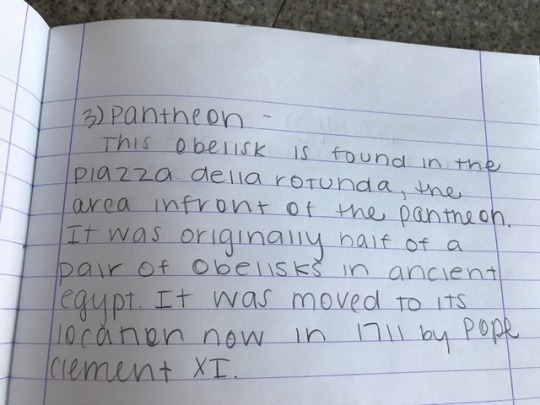 3) Pantheon -
This obelisk is found in the
piazza della rotunda, the
area infront of the pantheon.
It was originally half of a
pair of obelisks in ancient
egypt. It was moved to its
location now in 1711 by Pope
clement XI.